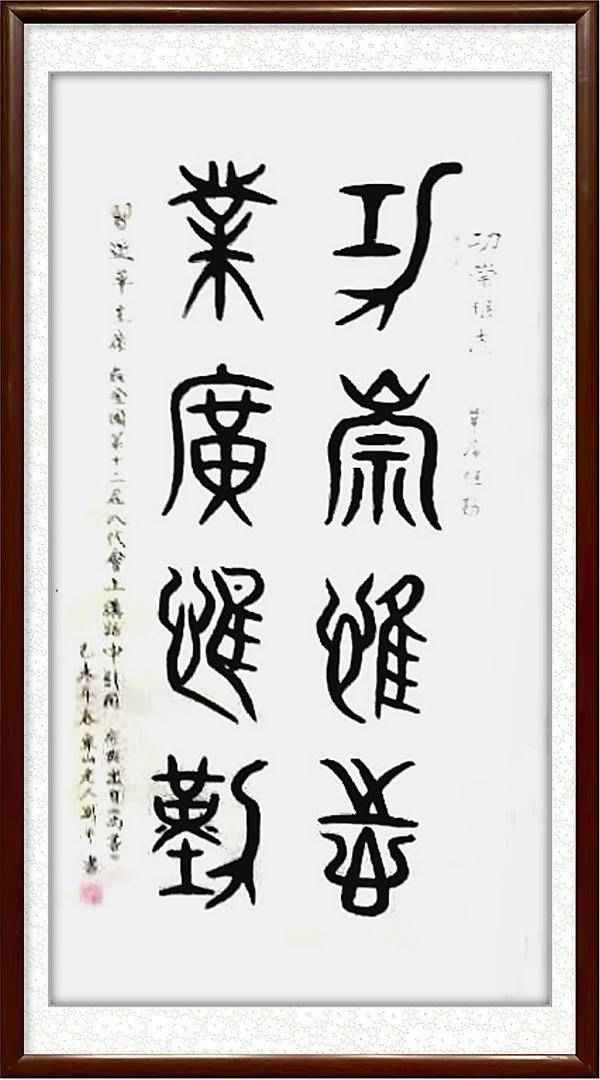 功崇惟志 業广惟勤
功崇惟志
業廣惟勤
習近平主席在全國第十二屆人代會上講話中引用 尚書
未年春 東山老人劉 書